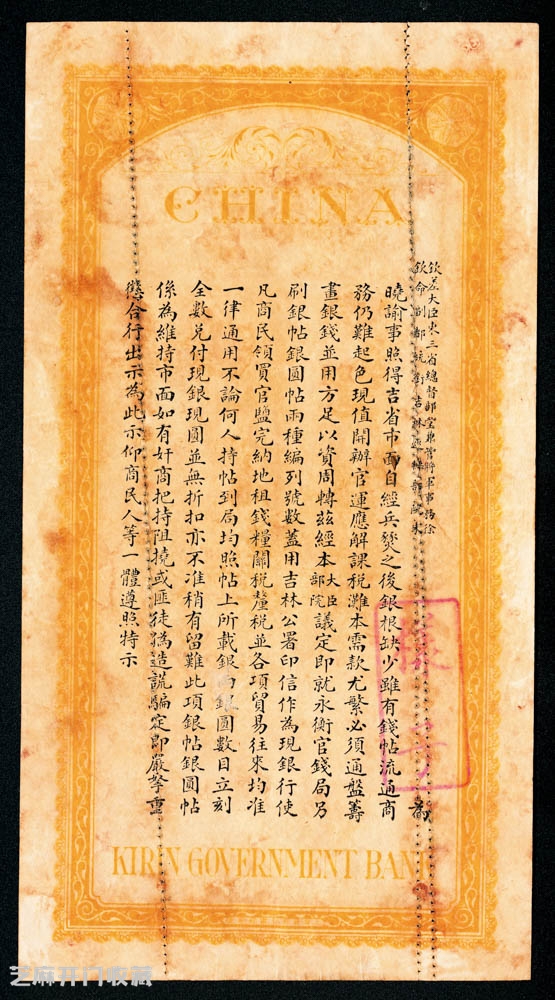 CHINA
欽差大臣東三省總督部堂兼管將軍事務徐
欽命副都統銜吉林巡撫部院朱
為
曉諭事照得吉省市面自經兵燹之後銀根缺少雖有錢帖流通商
務仍難起色現值開辦官運應解課稅灘本需款尤繁必須通盤籌
畫銀錢並用方足以資周轉茲經本大臣部院議定即就永衡官錢局乃
刷銀帖銀圓帖兩種編列號數蓋用吉林公署印信作為現銀行使
凡商民領買官鹽完納地租錢糧關稅釐稅並各項貿易往來均准
一律通用不論何人持帖到局均照帖上所載銀兩銀圓數目立刻
全數兌付現銀現圓並無折扣亦不准稍有留難此項銀帖銀圓帖
係為維持市面如有奸商把持阻撓或匪徒偽造誆騙定即嚴拏重
懲合行出示為此示仰商民人等一體遵照特示
KIRIN GOVERNMENT BANK
芝麻开门收藏